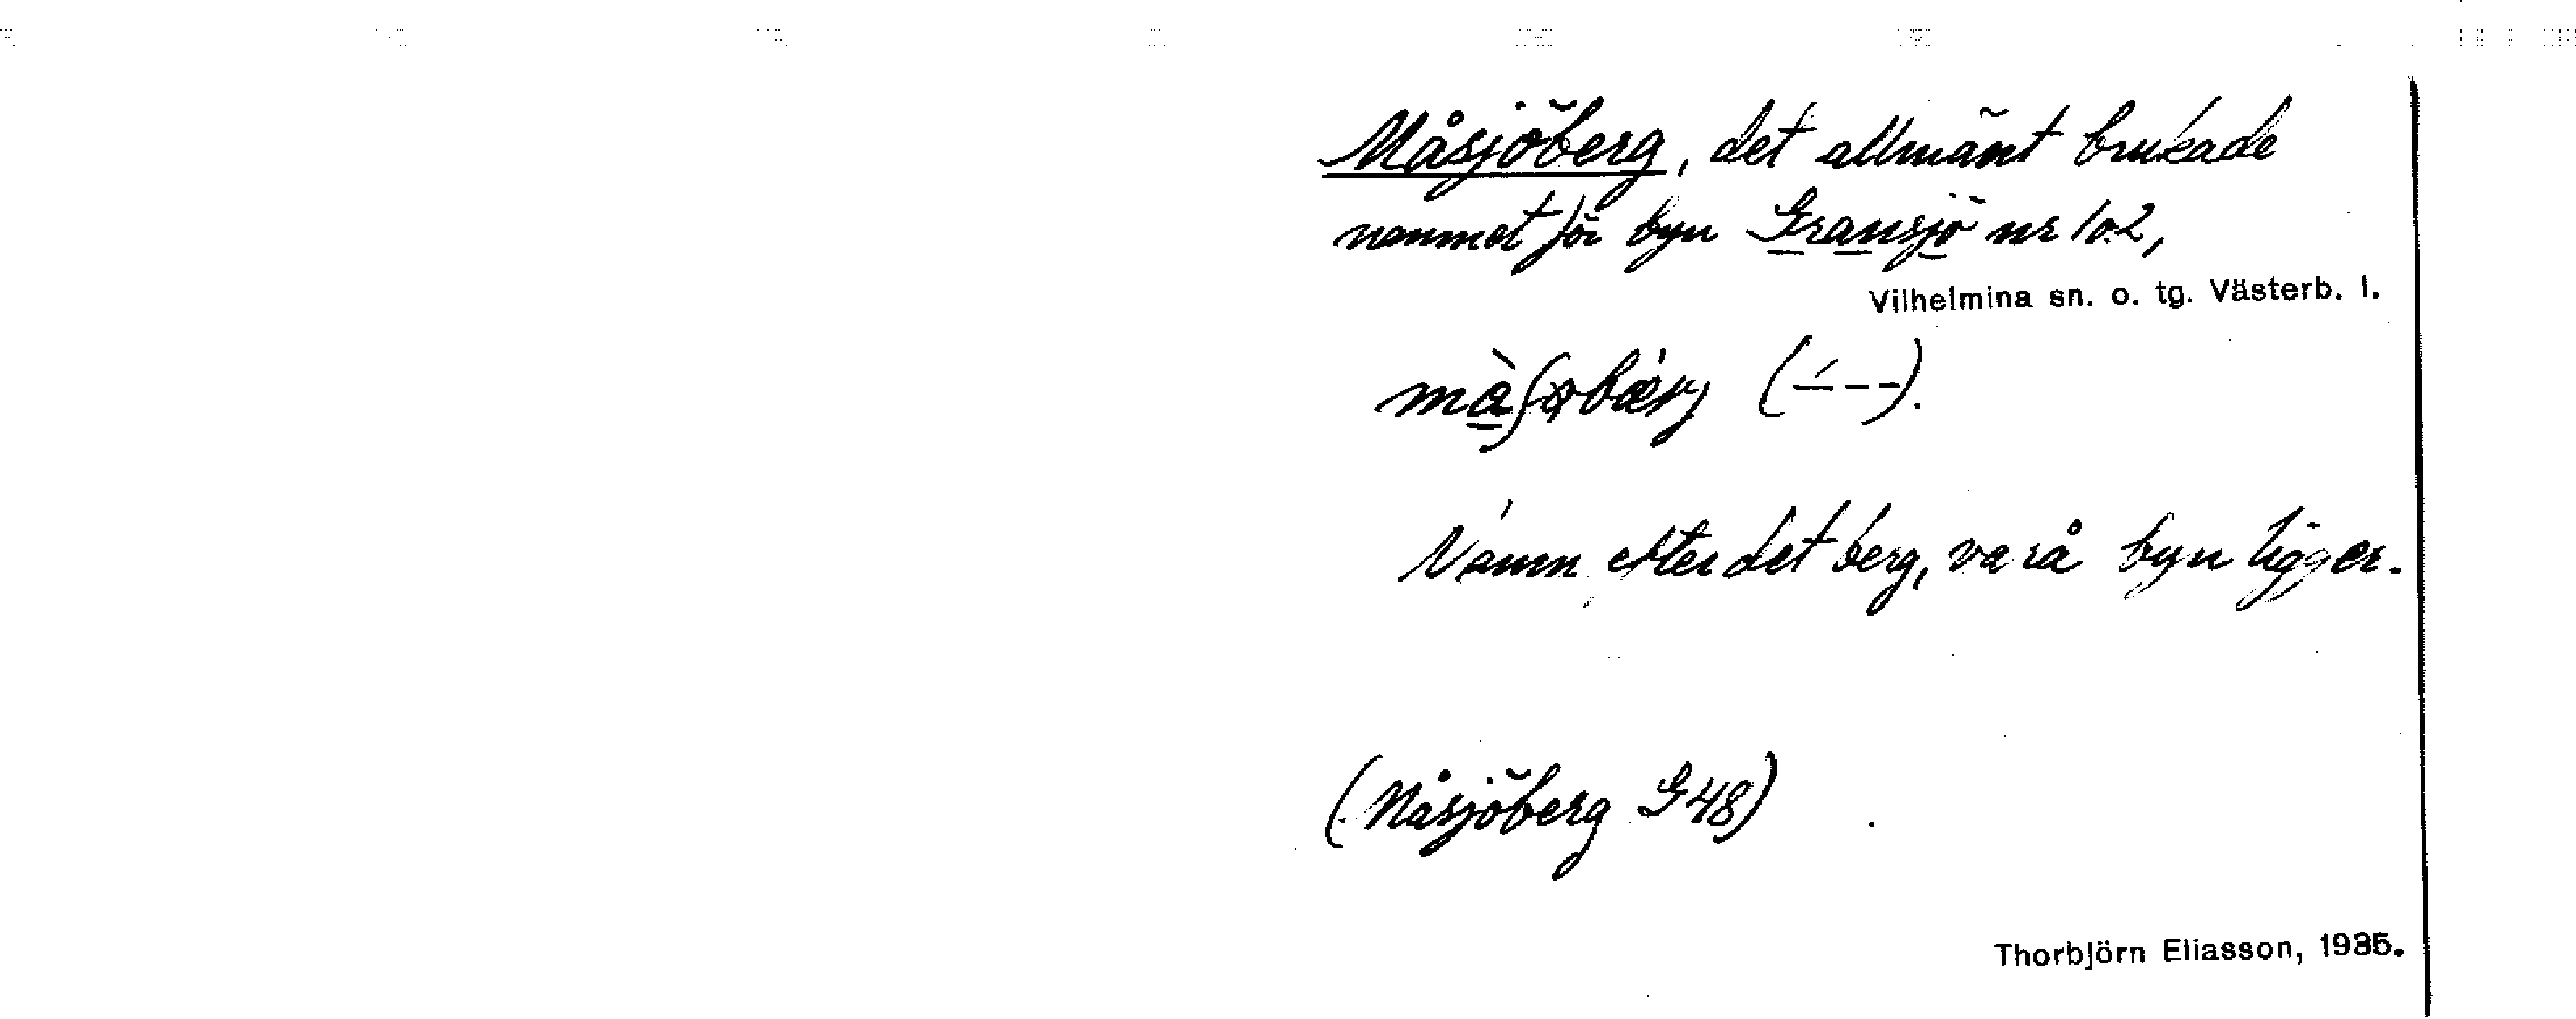 Måsjöberg, det allmänt brukade
namnet för byn Gransjö nr 1o2,
Vilhelmina sn. o. tg. Västerb. l.
(-́--).
Namn efter det berg, varå byn ligger.
(Måsjöberg G48)
Thorbjörn Eliasson, 1935.